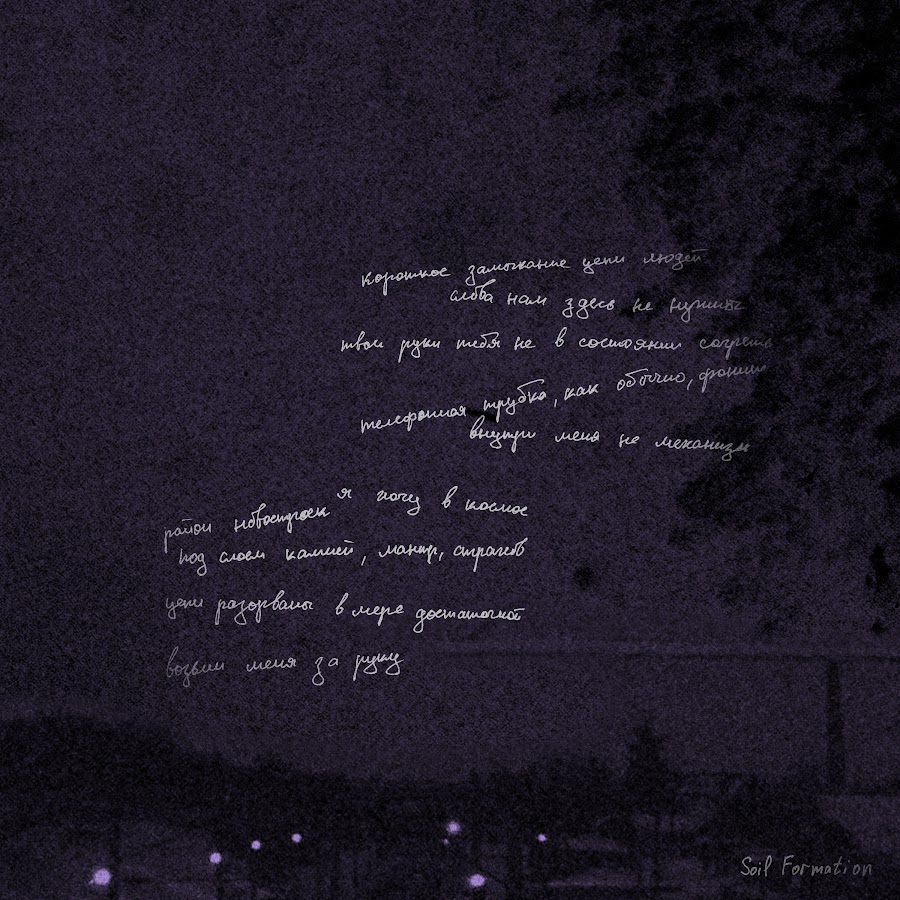 короткое замыкание цепи людей
слова нам здесь не нужны
твои руки тебя не в состоянии согреть
телефонная трубка, как обычно, фонит
внутри меня не механизм
район новостроек я хочу в космос
под слоем камней, мантр, страхов
цепи разорваны в мере достаточной
возьми меня за руку
Soil Formation